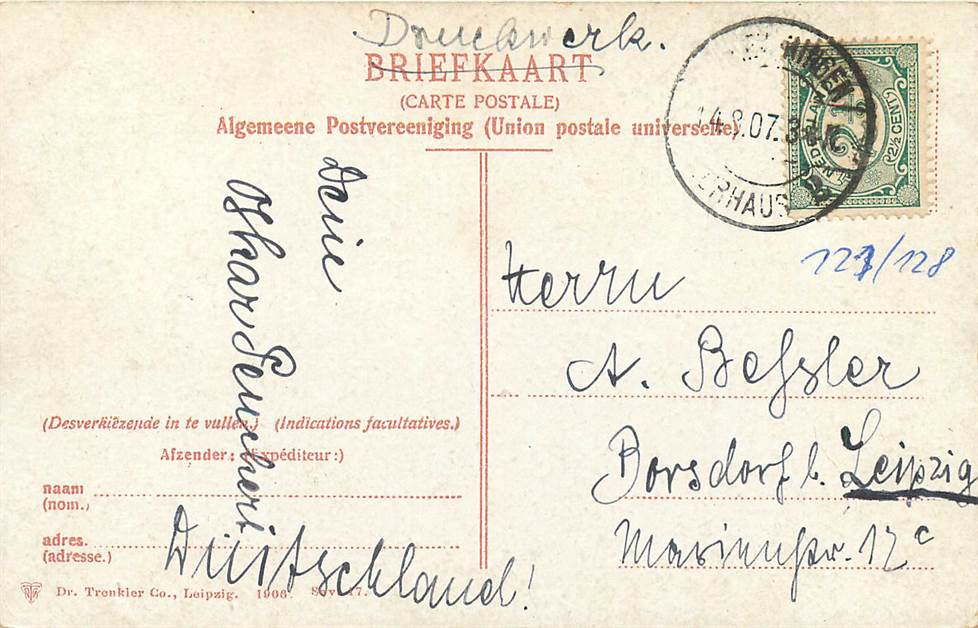 Druckwerk.
BRIEFKAART
(CARTE POSTALE)
Algemeene Postvereeniging (Union postale universelle)
14.8.07.
NEDERLAND
2½ CENT
127/128
Deine
Herrn
A. Beßler
Borsdorf b. Leipzig
Marienstr. 17c
(Desverkiezende in te vullen.) (Indications facultatives.)
Afzender: (Expéditeur:)
naam
(nom.)
adres.
(adresse.)
Deutschland!
Dr. Trenkler Co., Leipzig. 1906. 17.